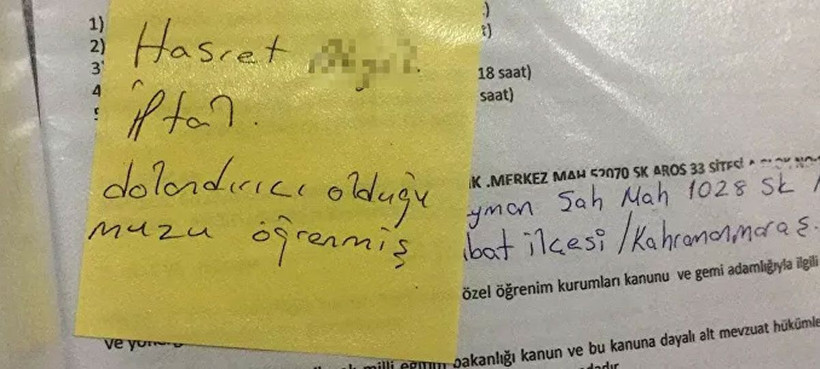 1)
2)
3
4
Hasret
İptal.
dolandırıcı olduğu
muzu öğrenmiş
)
)
18 saat)
saat)
K .MERKEZ MAH 52070 SK AROS 33 SİTESİ
yman Şah Mah 1028 Sk
bat ilçesi / Kahramanmaraş.
özel öğrenim kurumları kanunu ve gemi adamlığıyla ilgili
ve
milli eğitim bakanlığı kanun ve bu kanuna dayalı alt mevzuat hükümle